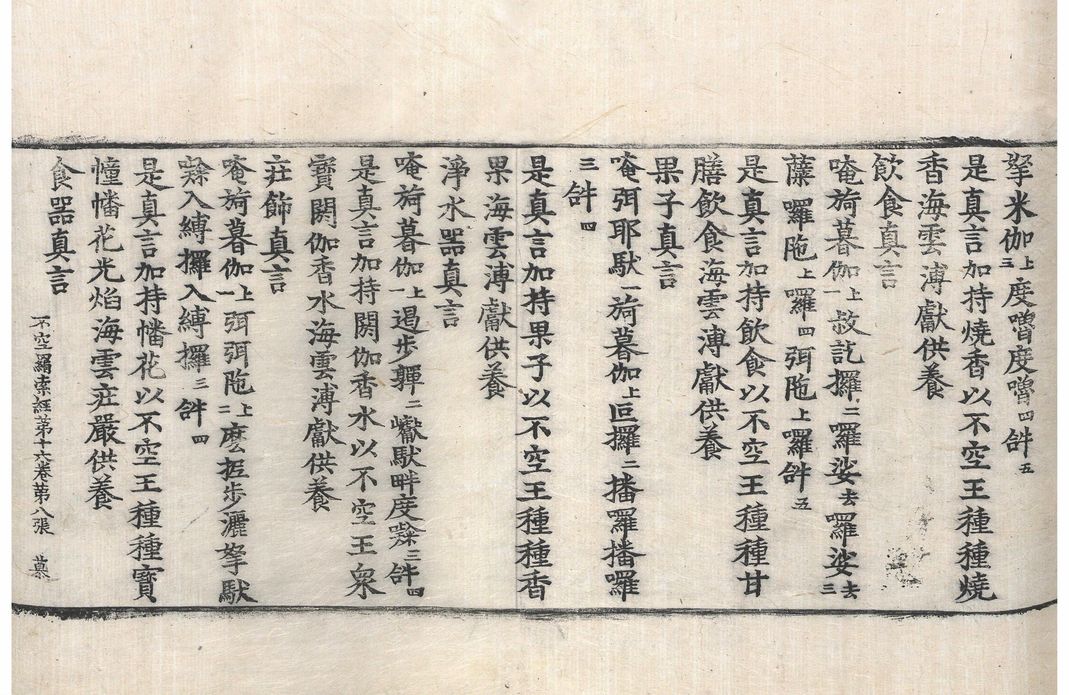 拏米伽上三度嚕度嚕四𤙖五
是真言加持燒香以不空王種種燒
香海雲溥獻供養
飲食真言
唵旖暮伽一上祋訖攞二囉娑去囉娑去三
蘗囉陁上囉四弭陁上囉𤙖五
是真言加持飲食以不空王種種甘
膳飲食海雲溥獻供養
果子真言
唵弭耶馱一旖暮伽上叵攞二播囉播囉
三𤙖四
是真言加持果子以不空王種種香
果海雲溥獻供養
淨水器真言
唵旖暮伽一上遏步𭌆二巘馱畔度𭉨三𤙖四
是真言加持閼伽香水以不空王眾
寶閼伽香水海雲溥獻供養
莊飾真言
唵旖暮伽一上弭陁二上麼抳步灑拏馱
𭉨入縛攞入縛攞三𤙖四
是真言加持幡花以不空王種種寶
幢幡花光焰海雲莊嚴供養
食器真言
不空羂索經第十六卷第八張 慕